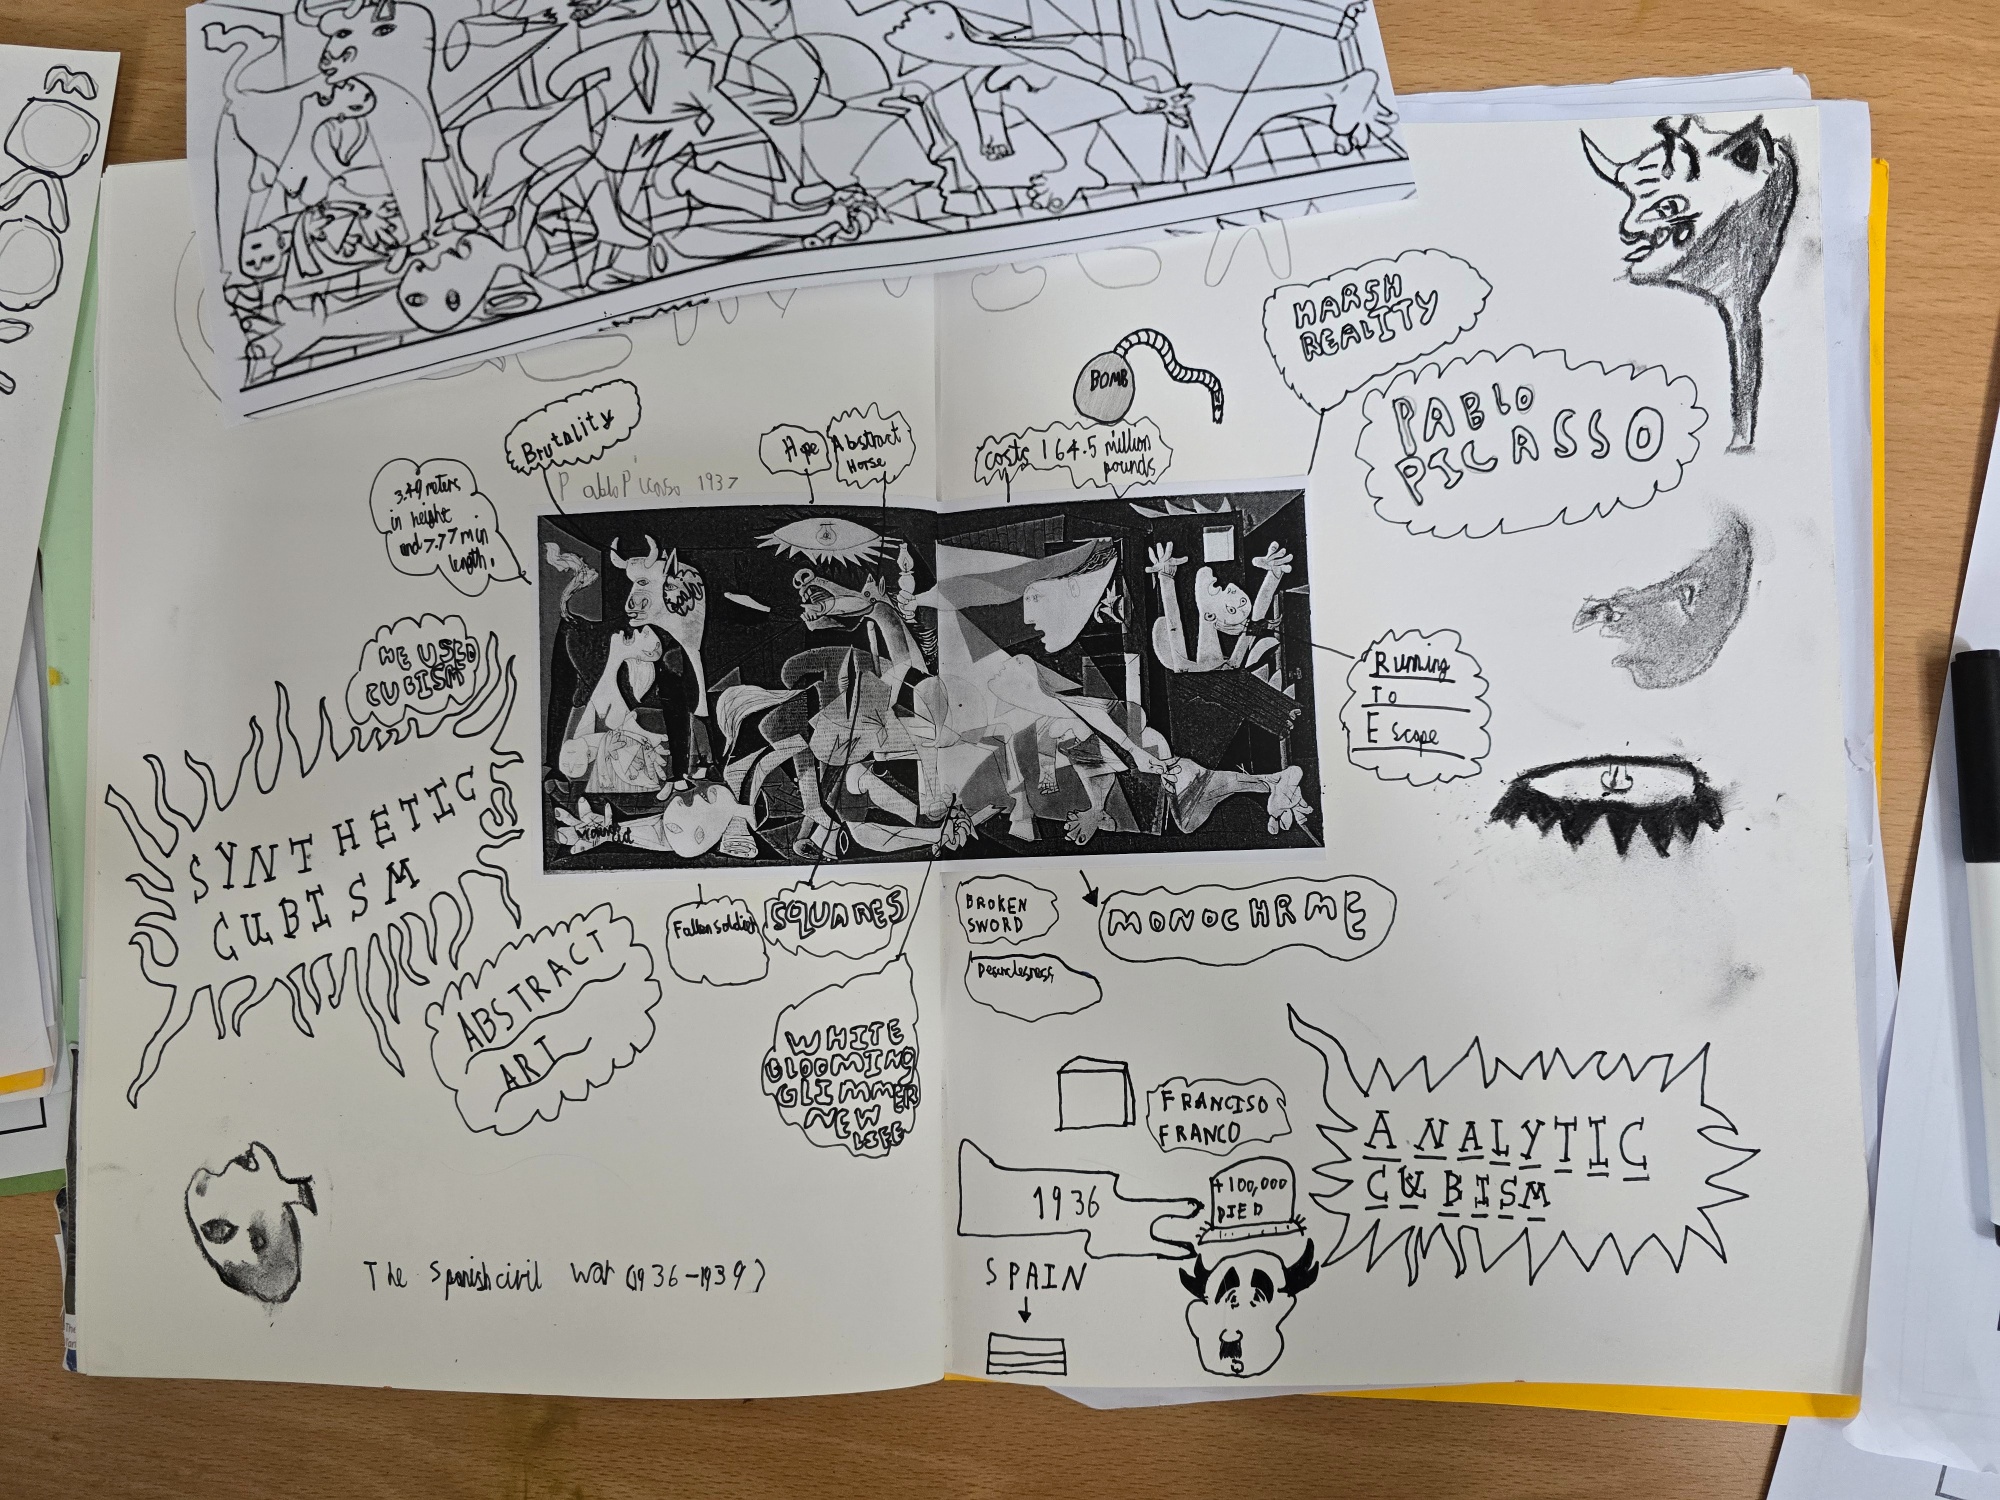 HARSH
REALITY
PABLO
PICASSO
BOMB
Brutality
Hope
Abstract
Horse
costs 164.5 million
pounds
Pablo Picasso 1937
3.49 meters
in height
and 7.77 m in
length.
HE USED
CUBISM
Running
To
Escape
SYNTHETIC
CUBISM
Fallen soldier
SQUARES
BROKEN
SWORD
MONOCHRME
ABSTRACT
ART
WHITE
BLOOMING
GLIMMER
NEW
LIFE
FRANCISO
FRANCO
ANALYTIC
CUBISM
1936
+100,000
DIED
SPAIN
The Spanish civil war (1936-1939)